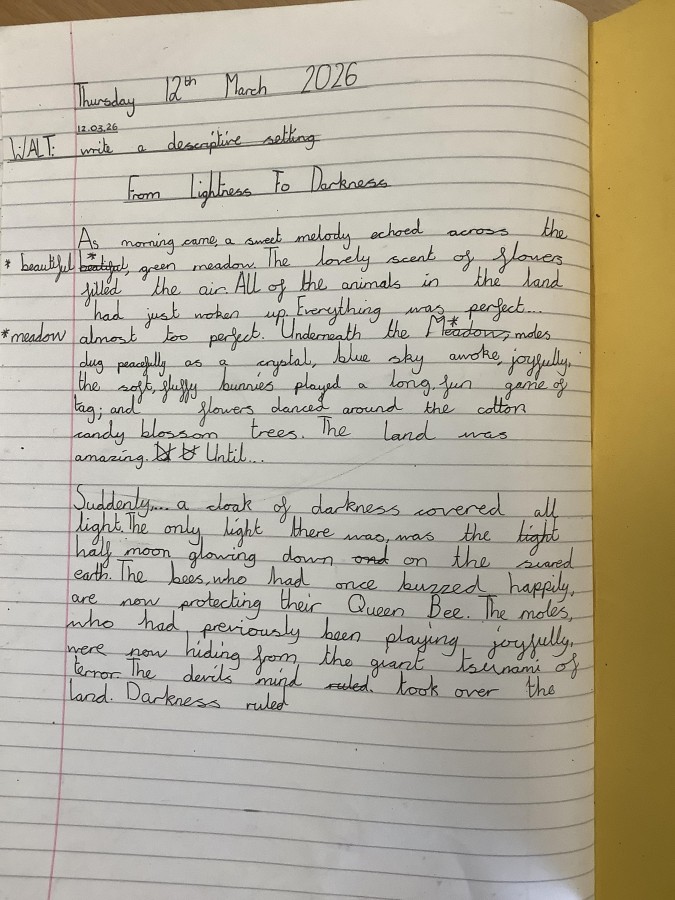 Thursday 12th March 2026
12.03.26
WALT: write a descriptive setting
From Lightness To Darkness
As morning came, a sweet melody echoed across the
* beautiful beatiful, green meadow. The lovely scent of flowers
filled the air. All of the animals in the land
had just woken up. Everything was perfect...
* meadow almost too perfect. Underneath the Meadow, moles
dug peacefully as a crystal, blue sky awoke, joyfully.
the soft, fluffy bunnies played a long, fun game of
tag; and flowers danced around the cotton
candy blossom trees. The land was
amazing. Until...
Suddenly.... a cloak of darkness covered all
light. The only light there was, was the light
half moon glowing down and on the scared
earth. The bees, who had once buzzed happily,
are now protecting their Queen Bee. The moles,
who had previously been playing joyfully,
were now hiding from the giant tsunami of
terror. The devils mind ruled. took over the
land. Darkness ruled